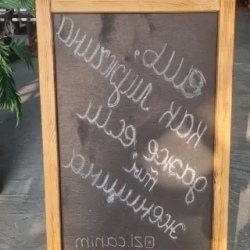 ешь,
как мужчина
даже если
ты
женщина
@zi.canim